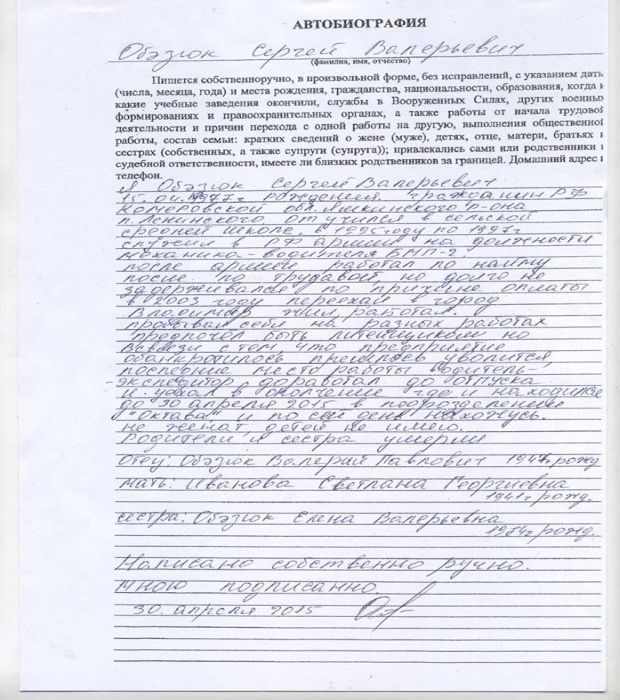 АВТОБИОГРАФИЯ
Обэзюк Сергей Валерьевич
(фамилия, имя, отчество)
Пишется собственноручно, в произвольной форме, без исправлений, с указанием даты
(числа, месяца, года) и места рождения, гражданства, национальности, образования, когда и
какие учебные заведения окончили, службы в Вооруженных Силах, других военных
формированиях и правоохранительных органах, а также работы от начала трудовой
деятельности и причин перехода с одной работы на другую, выполнения общественной
работы, состав семьи: кратких сведений о жене (муже), детях, отце, матери, братьях и
сестрах (собственных, а также супруги (супруга)); привлекались сами или родственники к
судебной ответственности, имеете ли близких родственников за границей. Домашний адрес и
телефон.
Я Обэзюк Сергей Валерьевич
15.04.1977г. рождения, гражданин РФ
Кемеровской обл. Яшкинского р-она
п. Ленинского отучился в сельской
средней школе. в 1995 году по 1997г
служил в РФ армии на должности
механика-водителя БМП-2.
после армии работал по найму
после по трудавой но долго не
задерживался по причине оплаты
в 2003 году переехал в город
Владимир жил работал.
пробывал себя на разных работах
предпочол быть литейщиком но
всвязи с тем что предприятие
обанкротилось пришлось уволится
последние место работы водитель-
экспедитор доработал до отпуска
и уехал в ополчение где и нахожусь
до 30 апреля 2015 в подразделение
"Октава" и по сей день нахожусь.
не женат детей не имею.
Родители и сестра умерли
отец: Обэзюк Валерий Павлович рожд
мать: Иванова Светлана Георгиевна
1941г рожд.
сестра: Обэзюк Елена Валерьевна
1974г рожд.
Написано собственно ручно.
мною подписанно.
30. апреля 2015